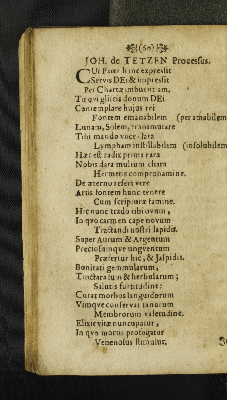 (60)
JOH. de TETZEN Processus.
CUi Pater hunc expressit
Servis DEi & impressit
Per Chartæ imbutu am,
Tu qui gliscis donum DEi
Contemplare hujus rei
Fontem emanabilem (per amabilem
Lunam, Solem, transmutare
Tibi mando vocr clara
Lympham instillabilem (insolubilem
Hæc est radix prima rara
Nobis dara multum chara
Hermetis compronamine.
De æterno refert vere
Artis fontem hunc tenere
Cum scripturæ famine.
Hic nunc trado tibi ovum,
In quo carmen cape novum
Tractandi nostri lapidis.
Super Aurum & Argentum
Preciosumque ungventum
Præfertur hic, & Jaspidis.
Bonitati gemmularum,
Tincturarum & herbularum;
Salutis fortitudine:
Curat morbos languidorum
Vimque conservat sanorum
Membrorum valetudine.
Elixir vitæ nuncupatur,
In quo mortis profugatur
Venenosus stimulus.